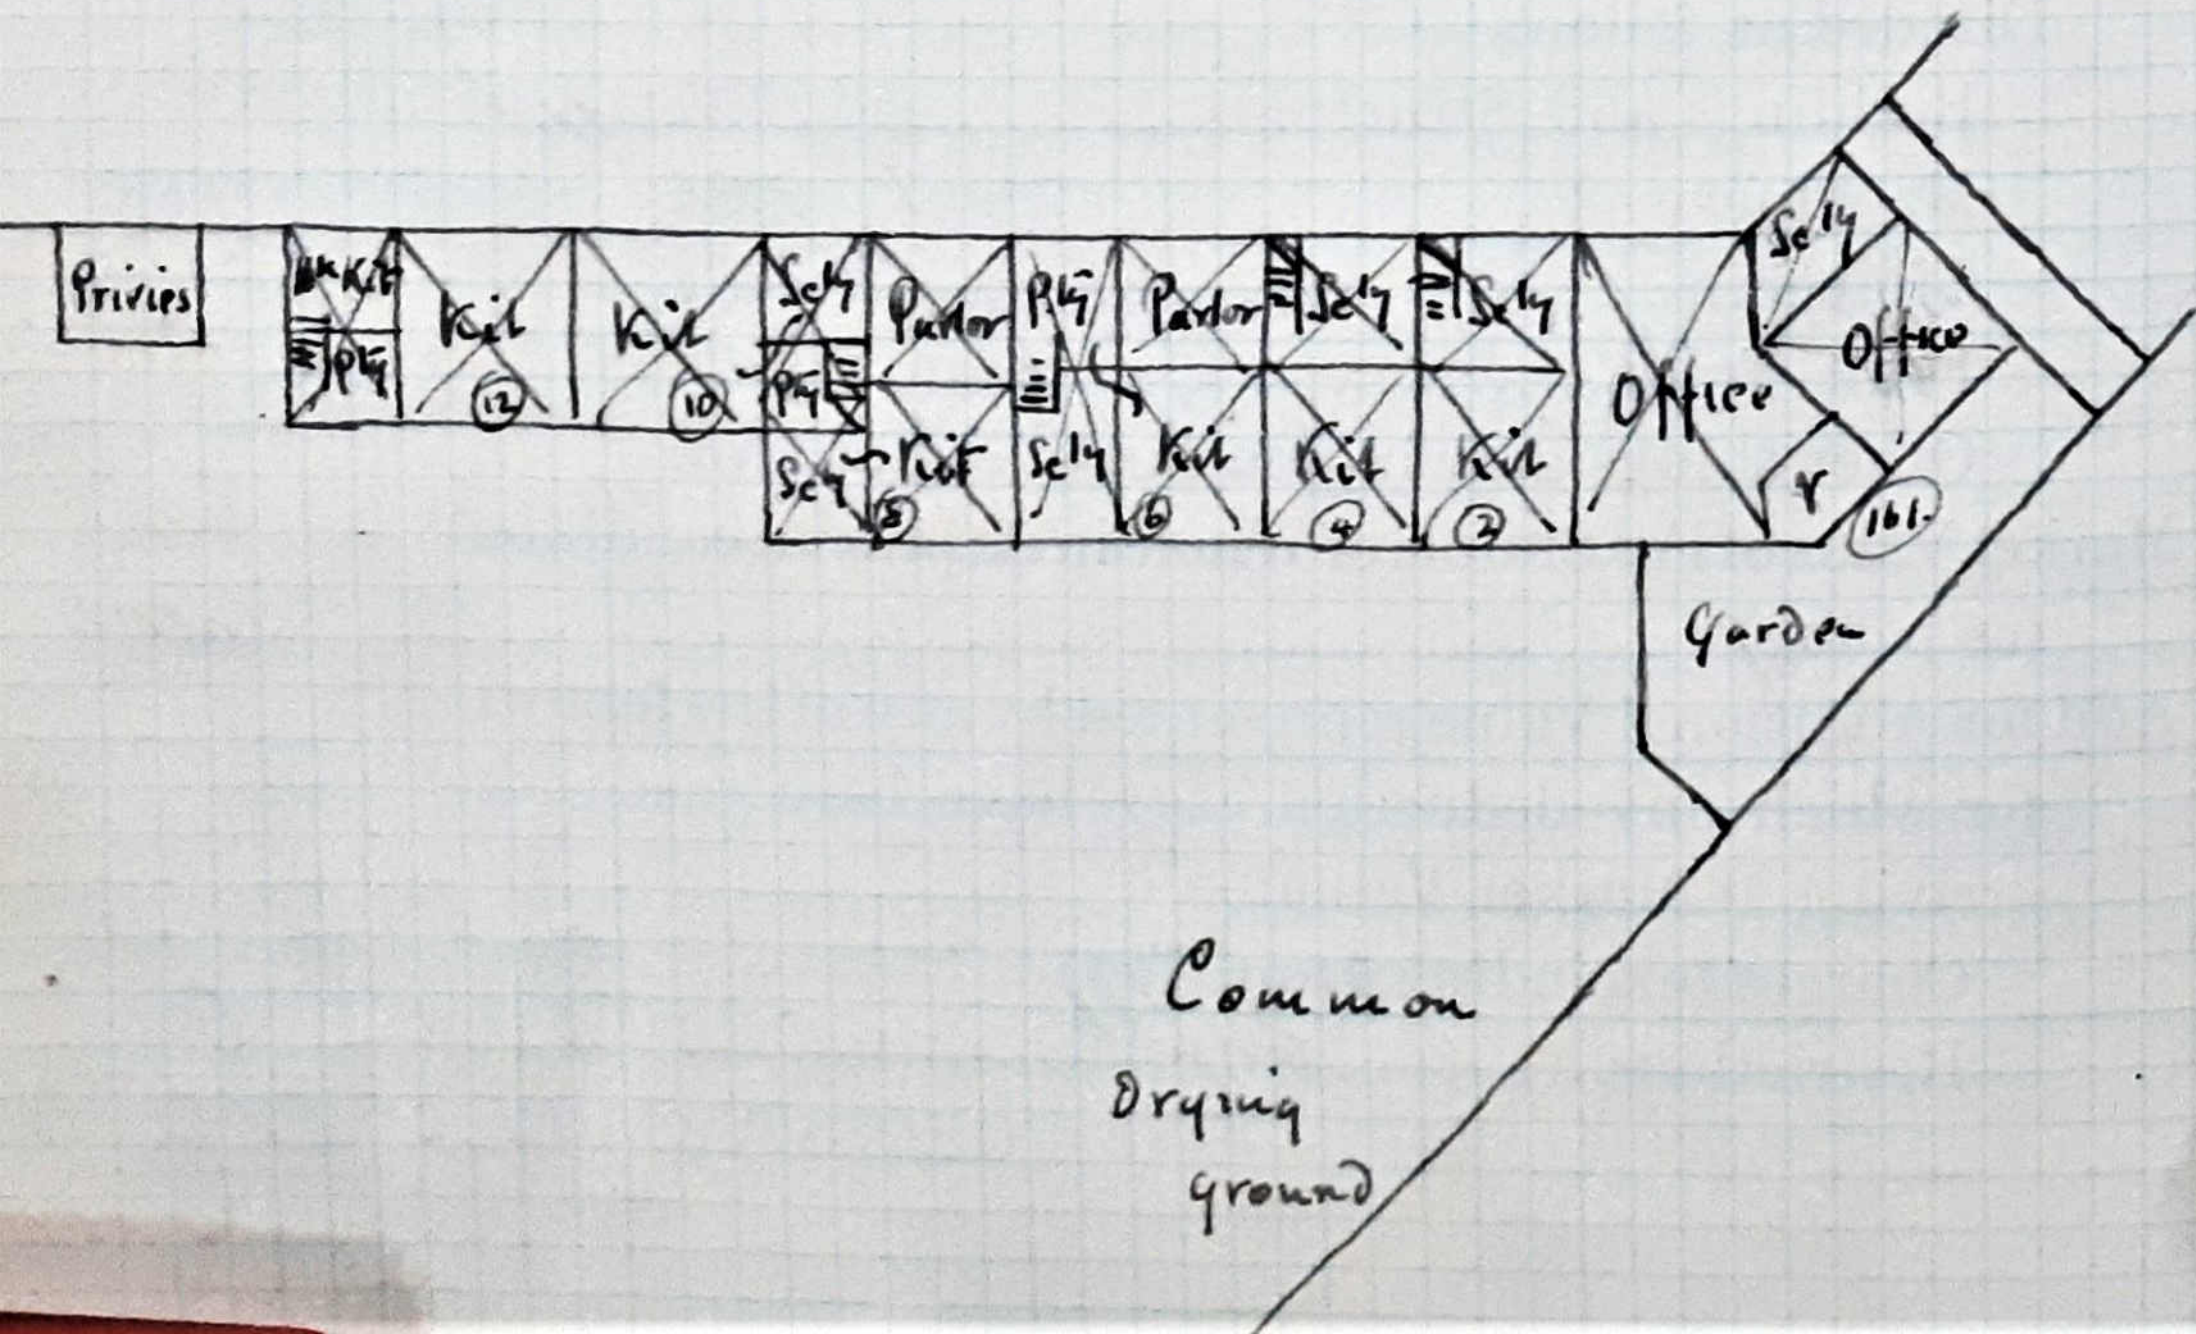 Privies
Bk Kit
Pty
Kit
12
Kit
10
Scly
Pty
Scy
Parlor
Kit
8
Pty
Scly
Parlor
Kit
6
Scly
Kit
4
Scly
Kit
2
Office
Scly
Office
V
161.
Garden
Common
Drying
ground